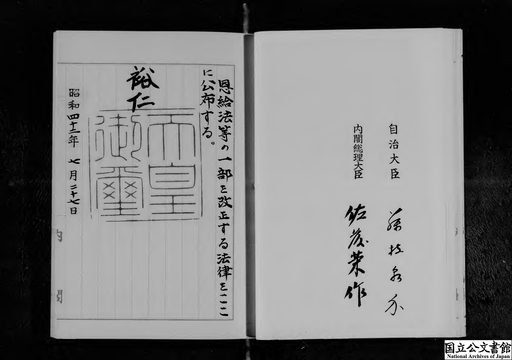 自治大臣
藤枝泉介
内閣総理大臣
佐藤榮作
恩給法等の一部を改正する法律をここ
に公布する。
裕仁
天皇
御璽
昭和四十二年七月二十七日
国立公文書館
National Archives of Japan